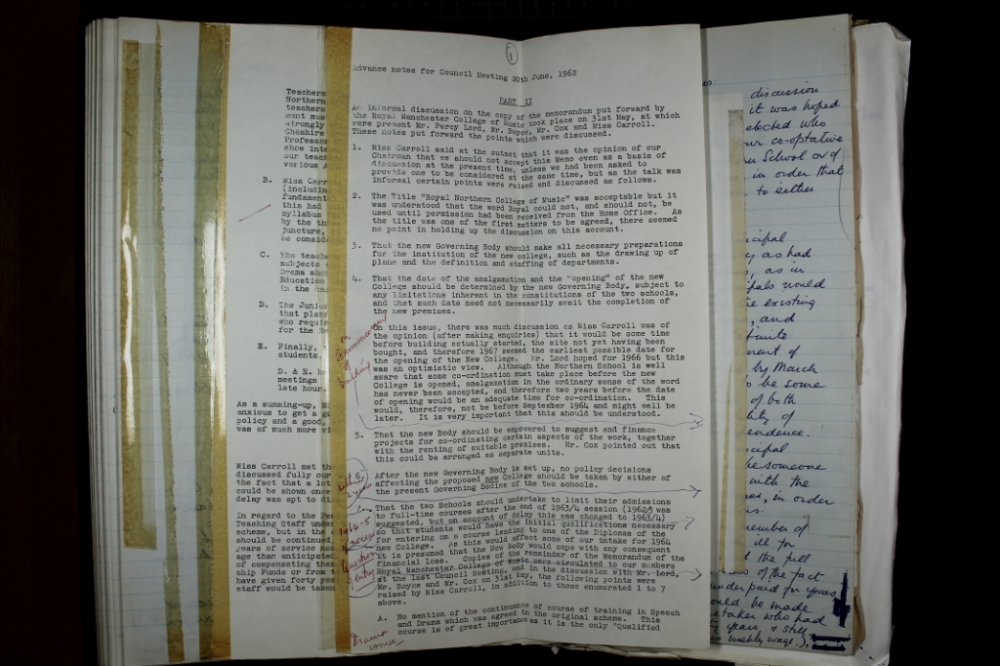 1
Advance notes for Council Meeting 20th June, 1962
PART II
An informal discussion on the copy of the memorandum put forward by
the Royal Manchester College of Music took place on 31st May, at which
were present Mr. Percy Lord, Mr. Boyce, Mr. Cox and Miss Carroll.
These notes put forward the points which were discussed.
1. Miss Carroll said at the outset that it was the opinion of our
Chairman that we should not accept this Memo even as a basis of
discussion at the present time, unless we had been asked to
provide one to be considered at the same time, but as the talk was
informal certain points were raised and discussed as follows.
2. The Title "Royal Northern College of Music" was acceptable but it
was understood that the word Royal could not, and should not, be
used until permission had been received from the Home Office. As
the title was one of the first matters to be agreed, there seemed
no point in holding up the discussion on this account.
3. That the new Governing Body should make all necessary preparations
for the institution of the new college, such as the drawing up of
plans and the definition and staffing of departments.
4. That the date of the amalgamation and the "opening" of the new
College should be determined by the new Governing Body, subject to
any limitations inherent in the constitutions of the two schools,
and that such date need not necessarily await the completion of
the new premises.
On this issue, there was much discussion as Miss Carroll was of
the opinion (after making enquiries) that it would be some time
before building actually started, the site not yet having been
bought, and therefore 1967 seemed the earliest possible date for
the opening of the New College. Mr. Lord hoped for 1966 but this
was an optimistic view. Although the Northern School is well
aware that some co-ordination must take place before the new
College is opened, amalgamation in the ordinary sense of the word
has never been accepted, and therefore two years before the date
of opening would be an adequate time for co-ordination. This
would, therefore, not be before September 1964 and might well be
later. It is very important that this should be understood.
5. That the new Body should be empowered to suggest and finance
projects for co-ordinating certain aspects of the work, together
with the renting of suitable premises. Mr. Cox pointed out that
this could be arranged as separate units.
After the new Governing Body is set up, no policy decisions
affecting the proposed new College should be taken by either of
the present Governing Bodies of the two schools.
That the two Schools should undertake to limit their admissions
to full-time courses after the end of 1963/4 session (1962/3 was
suggested, but on account of delay this was changed to 1963/4)
so that students would have the initial qualifications necessary
for entering on a course leading to one of the Diplomas of the
new College. As this would affect some of our intake for 1964
it is presumed that the New Body would cope with any consequent
financial loss. Copies of the remainder of the Memorandum of the
Royal Manchester College of Music were circulated to our members
at the last Council Meeting, and in the discussion with Mr. Lord,
Mr. Boyce and Mr. Cox on 31st May, the following points were
raised by Miss Carroll, in addition to those enumerated 1 to 7
above.
A. No mention of the continuance of course of training in Speech
and Drama which was agreed in the original scheme. This
course is of great importance as it is the only "Qualified
on
commencement
of
building
1964-5
entry
Drama
course
Teachers
Northern
teachers
must
strongly
Cheshire
Professor
show
our teach
various
B. Miss Carr
(includin
fundament
this had
syllabus
by the
juncture,
be conside
C. The teach
subjects
Drama shou
Education
in the
D. The Junio
that plan
who requir
for the
E. Finally,
students.
D. & E.
meetings
late hour,
As a summing-up,
anxious to get a
policy and a good,
was of much more
Miss Carroll met th
discussed fully our
the fact that a
could be shown once
delay was apt to
In regard to the
Teaching Staff unde
scheme, but in the
should be continued,
years of service
age than anticipated
of compensating the
ship Funds or from
have given forty
staff would be taken
discussion
it was hoped
elected who
our co-optative
School or of
in order that
to either
as had
, as in
would
existing
, and
by March
be some
of both
of
someone
with the
, in order
member of
ill for
the full
of the fact
under paid for years
could be made
who had
years & still
weekly wage),